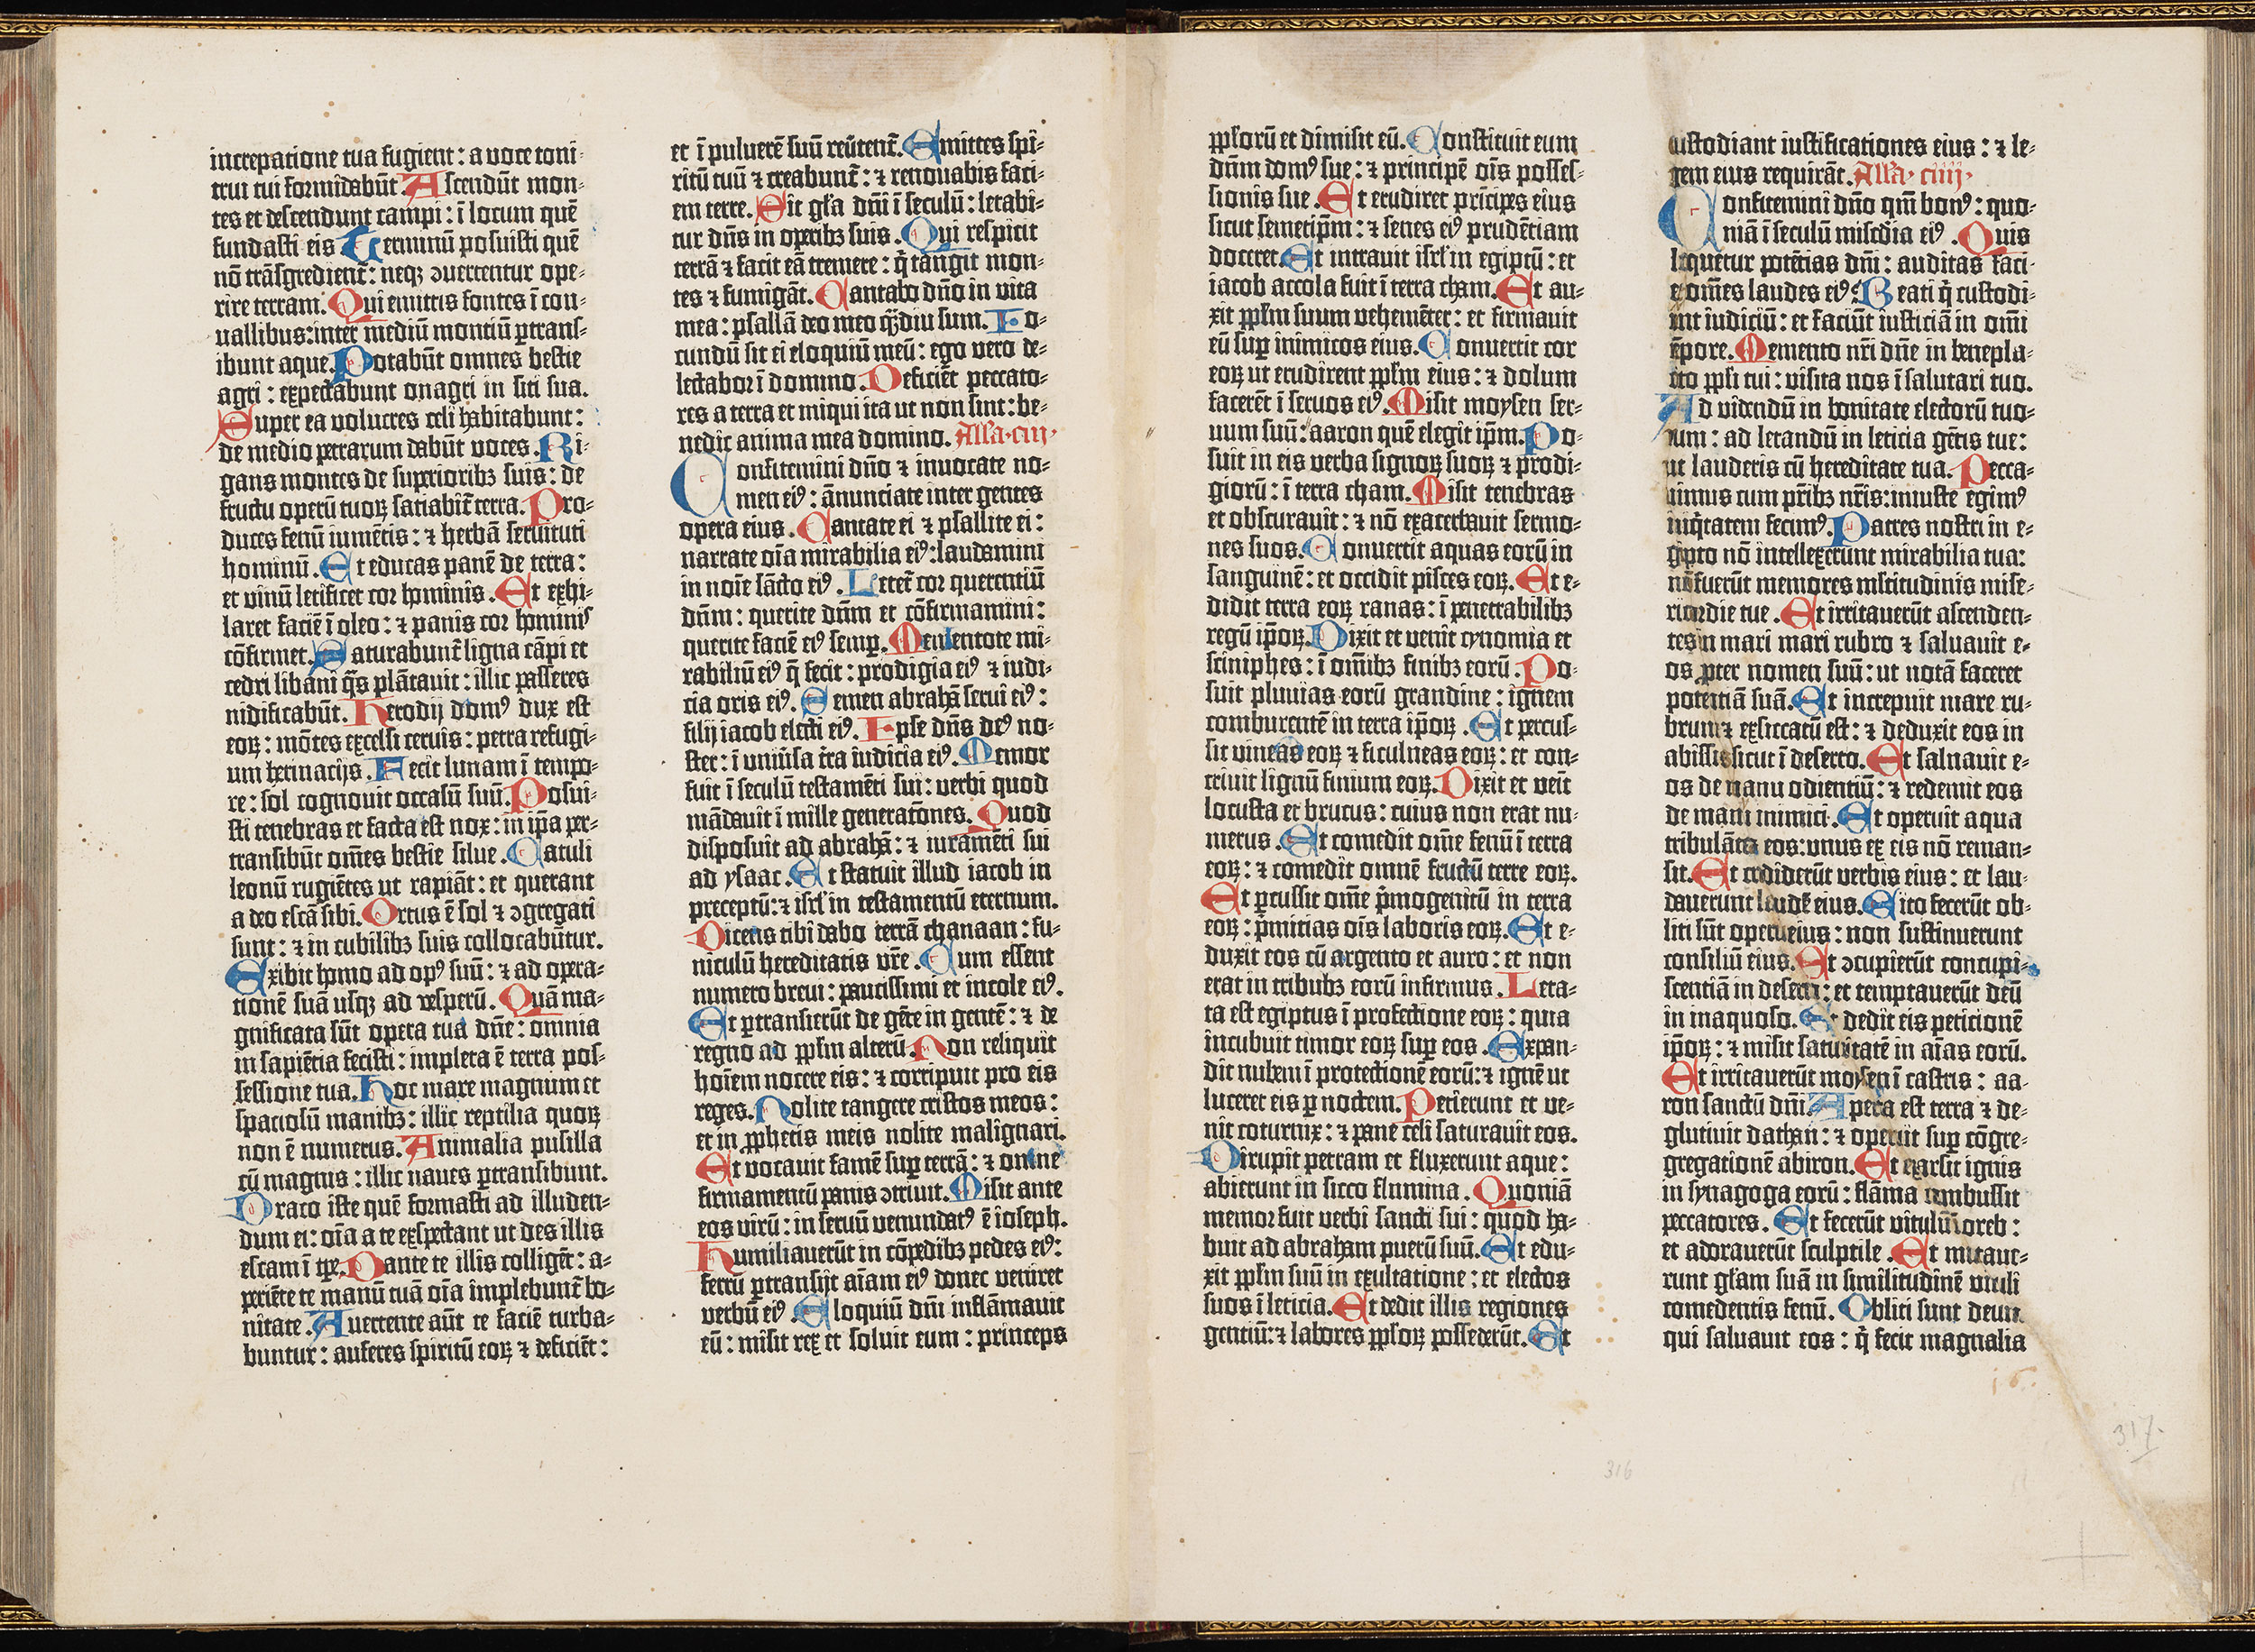 increpatione tua fugient: a voce toni-
trui tui formidabūt. Ascendūt mon-
tes et descendunt campi: ī locum quē
fundasti eis. Terminū posuisti quē
nō trāsgredient̄: neqꝫ ↄvertentur ope-
rire terram. Qui emittis fontes ī con-
vallibus: inter mediū montiū ꝑtrans-
ibunt aque. Potabūt omnes bestie
agri: expectabunt onagri in siti sua.
Super ea volucres celi habitabunt:
de medio petrarum dabūt voces. Ri-
gans montes de superioribꝫ suis: de
fructu operū tuoꝝ satiabit̄ terra. Pro-
duces fenū iumētis: ⁊ herbā servituti
hominū. Et educas panē de terra:
et vinū letificet cor hominis. Et exhi-
laret faciē ī oleo: ⁊ panis cor hominis
cōfirmet. Saturabunt̄ ligna cāpi et
cedri libani q̄s plātavit: illic passeres
nidificabūt. Herodij domꝰ dux est
eoꝝ: mōtes excelsi cervis: petra refugi-
um herinacijs. Fecit lunam ī tempo-
re: sol cognovit occasū suū. Posui-
sti tenebras et facta est nox: in ip̄a per-
transibūt om̄es bestie silve. Catuli
leonū rugiētes ut rapiāt: et querant
a deo escā sibi. Ortus ē sol ⁊ ↄgregati
sunt: ⁊ in cubilibꝫ suis collocabūtur.
Exibit homo ad opꝰ suū: ⁊ ad opera-
tionē suā usqꝫ ad vesperū. Quā ma-
gnificata sūt opera tua dn̄e: omnia
in sapiētia fecisti: impleta ē terra pos-
sessione tua. Hoc mare magnum et
spaciosū manibꝫ: illic reptilia quoꝝ
non ē numerus. Animalia pusilla
cū magnis: illic naves ꝑtransibunt.
Draco iste quē formasti ad illuden-
dum ei: oīa a te exspectant ut des illis
escam ī tꝑe. Dante te illis colligēt: a-
periēte te manū tuā oīa implebunt̄ bo-
nitate. Avertente aūt te faciē turba-
buntur: auferes spiritū eoꝝ ⁊ deficiēt:
et ī pulverē suū rev̄tent̄. Emittes spi-
ritū tuū ⁊ creabunt̄: ⁊ renovabis faci-
em terre. Sit gl̄a dn̄i ī seculū: letabi-
tur dn̄s in operibꝫ suis. Qui respicit
terrā ⁊ facit eā tremere: q̄ tangit mon-
tes ⁊ fumigāt. Cantabo dn̄o in vita
mea: psallā deo meo q̄diu sum. Io-
cundū sit ei eloquiū meū: ego vero de-
lectabor ī domino. Deficiēt peccato-
res a terra et iniqui ita ut non sint: be-
nedic anima mea domino. All'a · ciij ·
Confitemini dn̄o ⁊ invocate no-
men eiꝰ: ānunciate inter gentes
opera eius. Cantate ei ⁊ psallite ei:
narrate oīa mirabilia eiꝰ: laudamini
in noīe sācto eiꝰ. Letet̄ cor querentiū
dn̄m: querite dn̄m et cōfirmamini:
querite faciē eiꝰ semꝑ. Mementote mi-
rabiliū eiꝰ q̄ fecit: prodigia eiꝰ ⁊ iudi-
cia oris eiꝰ. Semen abrahā servi eiꝰ:
filij iacob electi eiꝰ. Ipse dn̄s deꝰ no-
ster: ī univ̄sa t̄ra iudicia eiꝰ. Memor
fuit ī seculū testamēti sui: verbi quod
mādavit ī mille generatōnes. Quod
disposuit ad abrahā: ⁊ iuramēti sui
ad ysaac. Et statuit illud iacob in
preceptū: ⁊ isrl' in testamentū eternum.
Dicens tibi dabo terrā chanaan: fu-
niculū hereditatis vr̄e. Cum essent
numero brevi: paucissimi et incole eiꝰ.
Et ꝑtransierūt de gēte in gentē: ⁊ de
regno ad ppl̄m alterū. Non reliquit
hoīem nocere eis: ⁊ corripuit pro eis
reges. Nolite tangere cristos meos:
et in ꝓphetis meis nolite malignari.
Et vocavit famē suꝑ terrā: ⁊ omne
firmamentū panis ↄtrivit. Misit ante
eos virū: in servū venundatꝰ ē ioseph.
Humiliaverūt in cōpedibꝫ pedes eiꝰ:
ferrū ꝑtransijt aīam eiꝰ donec veniret
verbū eiꝰ. Eloquiū dn̄i inflāmavit
eū: misit rex et solvit eum: princeps
ppl'orū et dimisit eū. Constituit eum
dn̄m domꝰ sue: ⁊ principē oīs posses-
sionis sue. Et erudiret prīcipes eius
sicut semetip̄m: ⁊ senes eiꝰ prudētiam
doceret. Et intravit isrl' in egiptū: et
iacob accola fuit ī terra cham. Et au-
xit ppl̄m suum vehemēter: et firmavit
eū suꝑ inimicos eius. Convertit cor
eoꝝ ut erudirent ppl̄m eius: ⁊ dolum
facerēt ī servos eiꝰ. Misit moysen ser-
vum suū: aaron quē elegit ip̄m. Po-
suit in eis verba signoꝝ suoꝝ ⁊ prodi-
giorū: ī terra cham. Misit tenebras
et obscuravit: ⁊ nō exacerbavit sermo-
nes suos. Convertit aquas eorū in
sanguinē: et occidit pisces eoꝝ. Et e-
didit terra eoꝝ ranas: ī penetrabilibꝫ
regū ip̄oꝝ. Dixit et venit cynomia et
sciniphes: ī om̄ibꝫ finibꝫ eorū. Po-
suit pluvias eorū grandinē: ignem
comburentē in terra ip̄oꝝ. Et percus-
sit vineas eoꝝ ⁊ ficulneas eoꝝ: et con-
trivit lignū finium eoꝝ. Dixit et veīt
locusta et brucus: cuius non erat nu-
merus. Et comedit om̄e fenū ī terra
eoꝝ: ⁊ comedit omnē fructū terre eoꝝ.
Et ꝑcussit om̄e p̄mogenitū in terra
eoꝝ: p̄mitias oīs laboris eoꝝ. Et e-
duxit eos cū argento et auro: et non
erat in tribubꝫ eorū infirmus. Leta-
ta est egiptus ī profectione eoꝝ: quia
incubuit timor eoꝝ suꝑ eos. Expan-
dit nubem ī protectionē eorū: ⁊ ignē ut
luceret eis ꝑ noctem. Petierunt et ve-
nit coturnix: ⁊ pane celi saturavit eos.
Dirupit petram et fluxerunt aque:
abierunt in sicco flumina. Quoniā
memor fuit verbi sancti sui: quod ha-
buit ad abraham puerū suū. Et edu-
xit ppl̄m suū in exultatione: et electos
suos ī leticia. Et dedit illis regiones
gentiū: ⁊ labores ppl'oꝝ possederūt. Et
custodiant iustificationes eius: ⁊ le-
gem eius requirāt. All'a · ciiij ·
Confitemini dn̄o qm̄ bonꝰ: quo-
niā ī seculū misc̄dia eiꝰ. Quis
loquetur potētias dn̄i: auditas faci-
et om̄es laudes eiꝰ. Beati q̄ custodi-
unt iudiciū: et faciūt iusticiā in om̄i
tēpore. Memento nr̄i dn̄e in benepla-
cito ppl̄i tui: visita nos ī salutari tuo.
Ad videndū in bonitate electorū tuo-
rum: ad letandū in leticia gētis tue:
ut lauderis cū hereditate tua. Pecca-
vimus cum pr̄ibꝫ nr̄is: iniuste egimꝰ
iniq̄tatem fecimꝰ. Patres nostri in e-
gipto nō intellexerunt mirabilia tua:
nō fuerūt memores mltitudinis mise-
ricordie tue. Et irritaverūt ascenden-
tes in mari mari rubro ⁊ salvavit e-
os ꝓpter nomen suū: ut notā faceret
potentiā suā. Et increpuit mare ru-
brum ⁊ exsiccatū est: ⁊ deduxit eos in
abissis sicut ī deserto. Et salvavit e-
os de manu odientiū: ⁊ redemit eos
de manu inimici. Et operuit aqua
tribulātes eos: unus ex eis nō reman-
sit. Et crediderūt verbis eius: et lau-
daverunt laudē eius. Cito fecerūt ob-
liti sūt operū eius: non sustinuerunt
consiliū eius. Et ↄcupierūt concupi-
scentiā in deserto: et temptaverūt deū
in inaquoso. Et dedit eis peticionē
ip̄oꝝ: ⁊ misit saturitatē in aīas eorū.
Et irritaverūt moysen ī castris: aa-
ron sanctū dn̄i. Aperta est terra ⁊ de-
glutivit dathan: ⁊ operuit suꝑ cōgre-
gregationē abiron. Et exarsit ignis
in synagoga eorū: flāma combussit
peccatores. Et fecerūt vitulū ī oreb:
et adoraverūt sculptile. Et mutave-
runt gl'am suā in similitudinē vituli
comedentis fenū. Obliti sunt deum
qui salvavit eos: q̄ fecit magnalia
316
317.